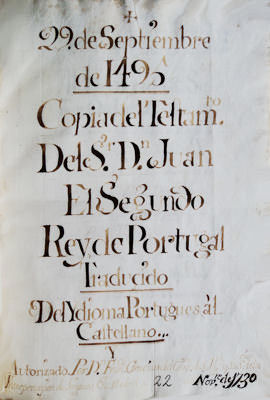 29 de Septiembre
de 1495
Copia del Testamto.
Del Sr. Dn. Juan
El Segundo
Rey de Portugal
Traducido
Del Ydioma Portugues al
Castellano...
Autorizado Por D.
22 Nove. de 1730